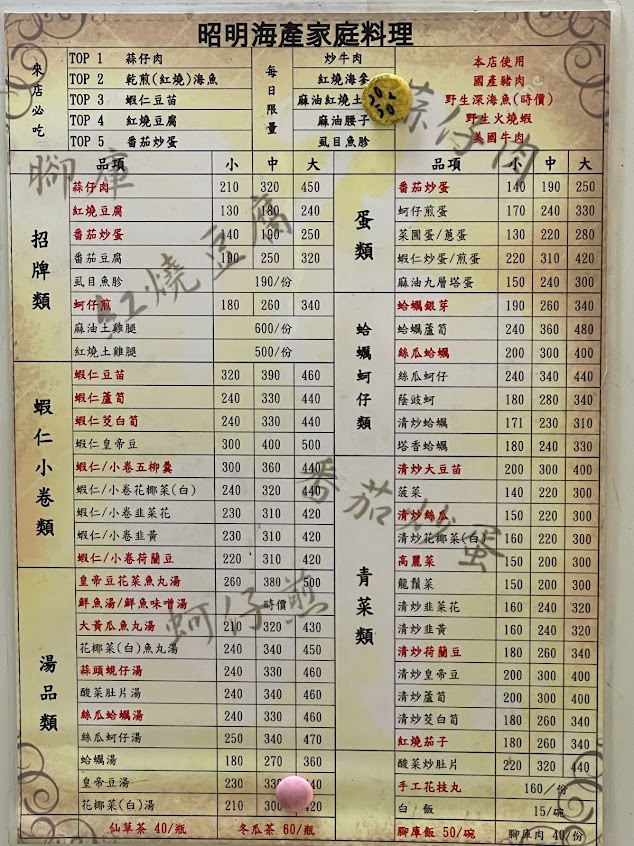 昭明海產家庭料理
來店必吃
TOP 1 蒜仔肉
TOP 2 乾煎(紅燒)海魚
TOP 3 蝦仁豆苗
TOP 4 紅燒豆腐
TOP 5 番茄炒蛋
每日限量
炒牛肉
紅燒海參
麻油紅燒土
麻油腰子
虱目魚胗
本店使用
國產豬肉
野生深海魚(時價)
野生火燒蝦
美國牛肉
蒜仔肉
腳庫
紅燒豆腐
番茄炒蛋
蚵仔煎
品項 小 中 大
招牌類
蒜仔肉 210 320 450
紅燒豆腐 130 180 240
番茄炒蛋 140 190 250
番茄豆腐 190 250 320
虱目魚胗 190/份
蚵仔煎 180 260 340
麻油土雞腿 600/份
紅燒土雞腿 500/份
蝦仁小卷類
蝦仁豆苗 320 390 460
蝦仁蘆筍 240 330 440
蝦仁茭白筍 240 330 440
蝦仁皇帝豆 300 400 500
蝦仁/小卷五柳羹 300 360 440
蝦仁/小卷花椰菜(白) 240 320 440
蝦仁/小卷韭菜花 230 310 420
蝦仁/小卷韭黃 230 310 420
蝦仁/小卷荷蘭豆 220 310 420
湯品類
皇帝豆花菜魚丸湯 260 380 500
鮮魚湯/鮮魚味噌湯 時價
大黃瓜魚丸湯 210 320 430
花椰菜(白)魚丸湯 240 340 450
蒜頭蜆仔湯 240 330 460
酸菜肚片湯 240 340 460
絲瓜蛤蠣湯 240 330 460
絲瓜蚵仔湯 250 340 470
蛤蠣湯 180 270 360
皇帝豆湯 230 330 440
花椰菜(白)湯 210 300 420
仙草茶 40/瓶 冬瓜茶 60/瓶
品項 小 中 大
蛋類
番茄炒蛋 140 190 250
蚵仔煎蛋 170 240 330
菜圃蛋/蔥蛋 130 220 280
蝦仁炒蛋/煎蛋 220 310 420
麻油九層塔蛋 150 240 300
蛤蠣蚵仔類
蛤蠣銀芽 190 260 340
蛤蠣蘆筍 240 360 480
絲瓜蛤蠣 200 300 400
絲瓜蚵仔 240 340 440
蔭豉蚵 180 280 340
清炒蛤蠣 171 230 310
塔香蛤蠣 180 240 330
青菜類
清炒大豆苗 200 300 400
菠菜 140 220 300
清炒絲瓜 150 220 300
清炒花椰菜(白) 160 220 300
高麗菜 150 200 300
龍鬚菜 150 200 300
清炒韭菜花 160 240 320
清炒韭黃 160 240 320
清炒荷蘭豆 180 260 340
清炒皇帝豆 200 300 400
清炒蘆筍 200 300 400
清炒茭白筍 180 260 340
紅燒茄子 180 260 340
酸菜炒肚片 220 320 440
手工花枝丸 160/份
白飯 15/碗
腳庫飯 50/碗 腳庫肉 40/份